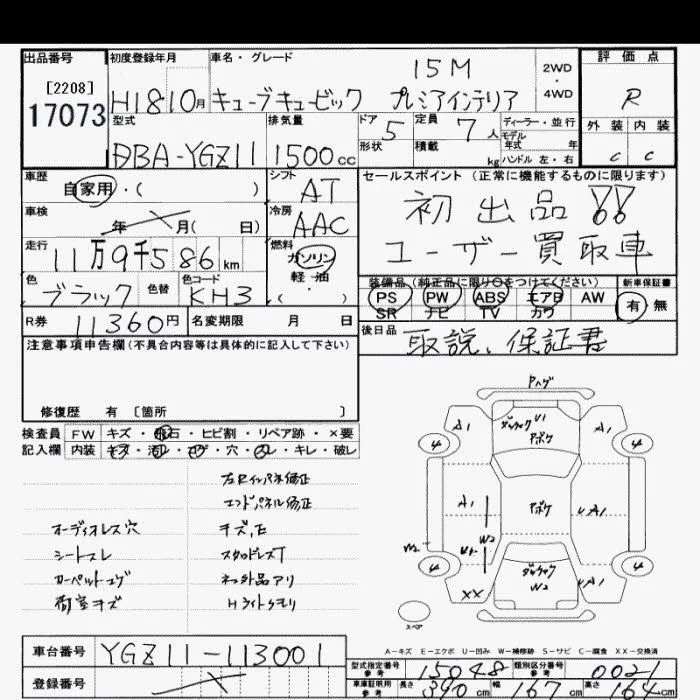 出品番号 初度登録年月 車名・グレード 15M 2WD・4WD 評価点
[2208]
17073 H18 10月 キューブキュービック プレミアインテリア R
型式 排気量 ドア 5 定員 7人 ディーラー・並行 外装 内装
形状 積載 kg モデル年式 年
DBA-YGZ11 1500cc ハンドル 左・右 C C
車歴 自家用・( ) シフト AT セールスポイント(正常に機能するものに限ります)
車検 年 月( 日) 冷房 AAC 初出品!!
走行 11万9千586km 燃料 ガソリン ユーザー買取車
軽・油
・( )
色 ブラック 色替 色コード KH3
装備品(純正品に限り○をつけてください) 新車保証書
PS PW ABS エアB AW 有・無
SR ナビ TV カワ
R券 11360円 名変期限 月 日
後日品 取説、保証書
注意事項申告欄(不具合内容等は具体的に記入して下さい)
修復歴 有〔箇所 〕
検査員 FW キズ・飛石・ヒビ割・リペア跡・×要
記入欄 内装 キズ・汚レ・コゲ・穴・スレ・キレ・破レ
左Rインパネ修正
エンドパネル修正
オーディオレス穴 キズ,E
シートスレ スタッドレスT
カーペットコゲ ネコ外品アリ
荷室キズ Hライトクモリ
Pハゲ
A1 U1 A1
アポケ
A1 アポケ UA1
W2
M2
XX W2 UA1
スペア
A-キズ E-エクボ U-凹み W-補修跡 S-サビ C-腐食 XX-交換済
車台番号 YGZ11-113001
登録番号
型式指定番号 参考 15048 類別区分番号 参考 0021
車庫証明用 参考 長さ 390cm 幅 167cm 高さ 164cm